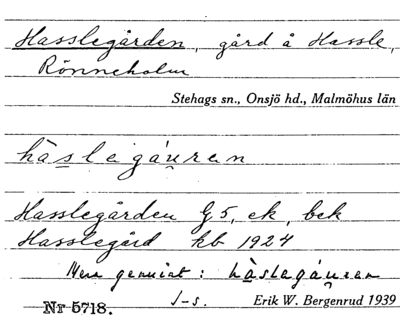 Hasslegården, gård å Hassle,
Rönneholm
Stehags sn., Onsjö hd., Malmöhus län
hàslegáu̯ren
Hasslegården G 5, ek, bek
Hasslegård kb 1924
Mera genuint: hàslegáu̯ren
J-s. Erik W. Bergenrud 1939
Nr 5718.